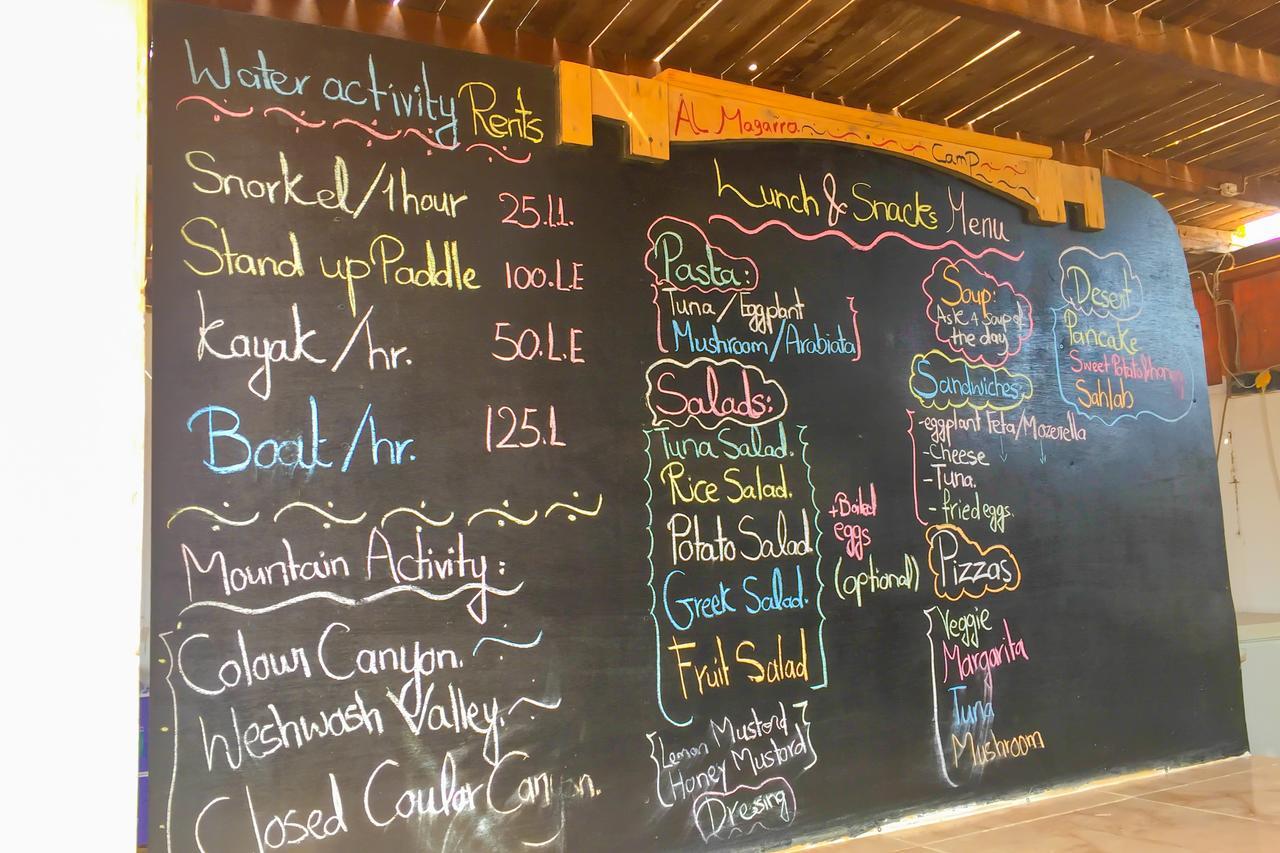 Water activity Rents
Snorkel/1hour 25.L.
Stand up Paddle 100.L.E
Kayak/hr. 50.L.E
Boat/hr. 125.L
Mountain Activity:
Colour Canyon.
Weshwash Valley.
Closed Coulor Canyon.
AL Magarra Camp
Lunch & Snacks Menu
Pasta:
Tuna/Eggplant
Mushroom/Arabiata
Salads:
Tuna Salad.
Rice Salad.
Potato Salad
Greek Salad.
Fruit Salad
+Boiled
eggs
(optional)
Lemon Mustord
Honey Mustord
Dressing
Soup:
Ask 4 Soup of
the day
Sandwiches
-eggplant Feta/Mozerella
-Cheese
-Tuna.
-fried eggs.
Pizzas
Veggie
Margarita
Tuna
Mushroom
Desert
Pancake
Sweet Potato/honey
Sahlab